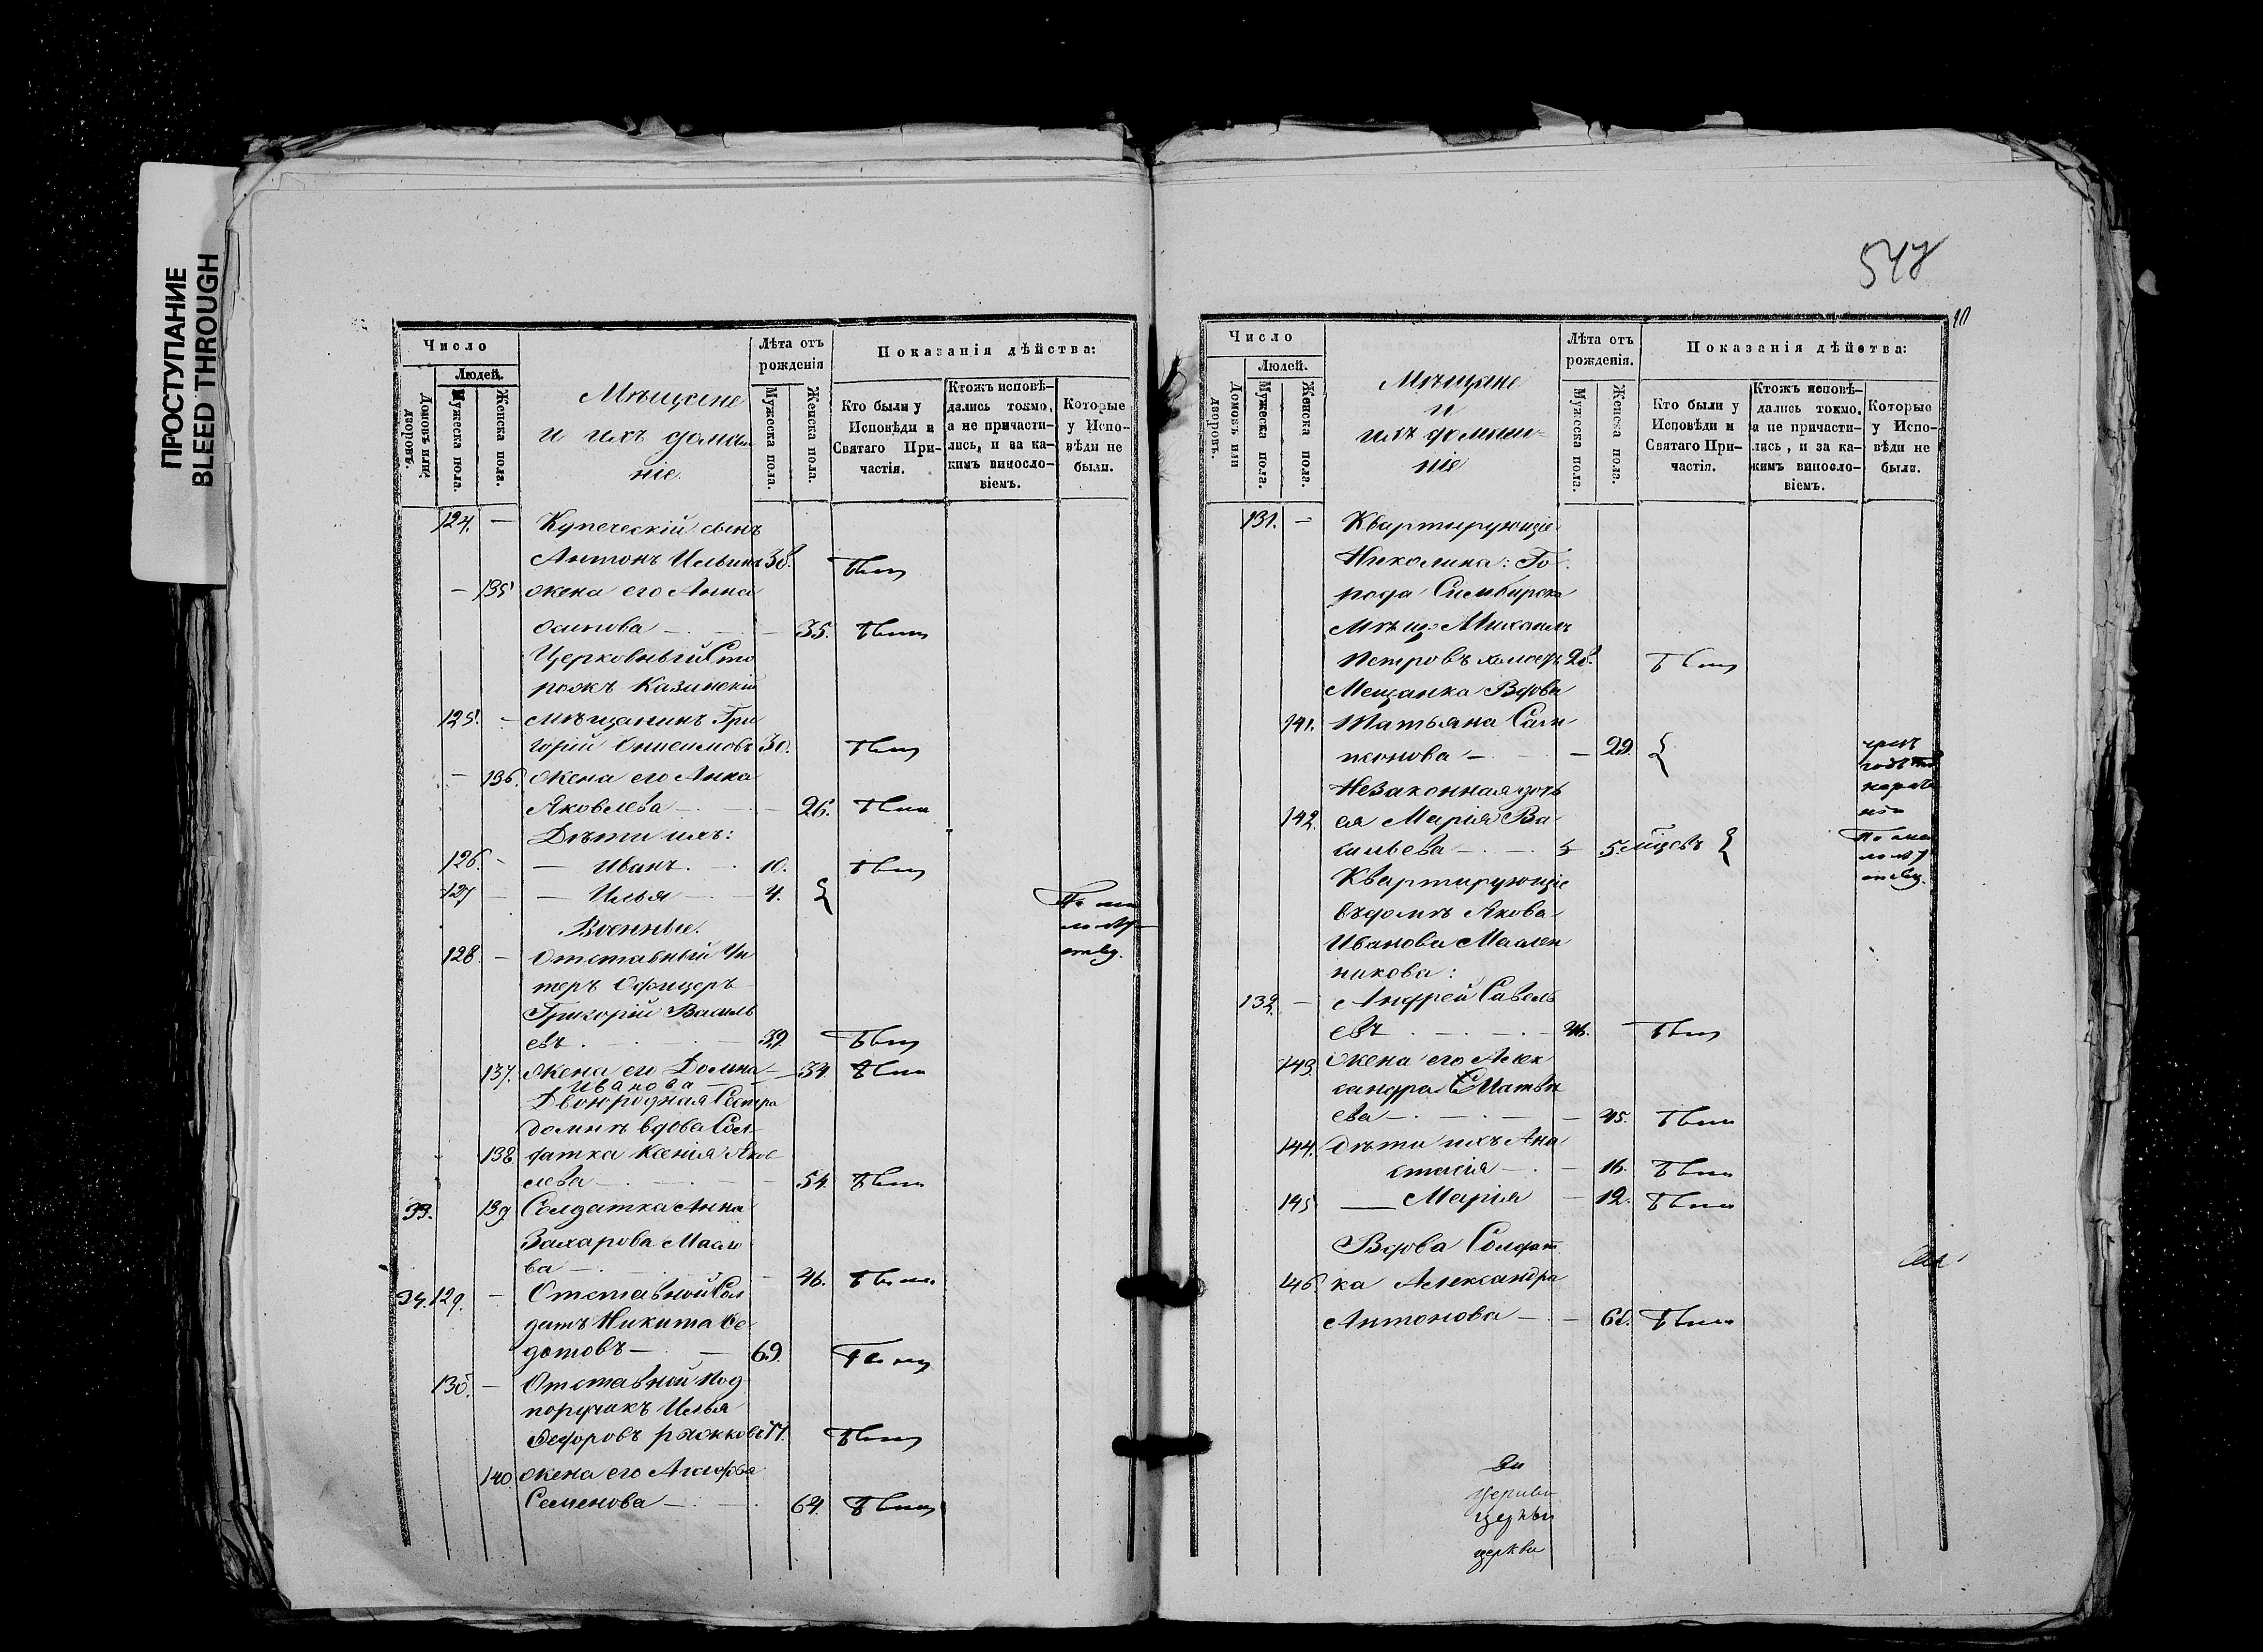 ПРОСТУПАНИЕ
BLEED THROUGH
Число
Людей.
Домовъ или дворовъ.
Мужеска пола.
Женска пола.
Мѣщане
и ихъ домаш
ніе.
Лѣта отъ рожденія
Мужеска пола.
Женска пола.
Показанія дѣйства:
Кто были у Исповѣди и Святаго При-
частія.
Ктожъ исповѣ-
дались токмо,
а не причасти-
лись, и за ка-
кимъ винословіемъ.
Которые у Испо-
вѣди не были.
124. — Купеческій сынъ
Антонъ Ильинъ 38. былъ
— 135 жена его Анна
Осипова — 35. была
Церковный Сто
рожъ Казинскій
125. — мѣщанинъ Гри
горій Онисимовъ 30. былъ
— 136. жена его Анна
Яковлева — 26. была
Дѣти ихъ:
126. — — Иванъ 10. былъ
127 — — Илья — 4. По ма
лолѣт
ству.
Военные.
128. — Отставный Ун
теръ Офицеръ
Григорій Василь
евъ 39. былъ
137. жена его Домна 34 была
Иванова
Двоюродная Сестра
Домнѣ вдова Сол
138. датка Ксенія Яков
лева 54. была
33. 139. Солдатка Анна
Захарова Масло
ва — 46. была
34. 129. — Отставной Сол
датъ Никита Ѳе
дотовъ — 69. былъ
130. — Отставной Под
поручикъ Илья
Ѳедоровъ 77. былъ
140. жена его Агафья
Семенова — 64. была
547
Число
Людей.
Домовъ или дворовъ.
Мужеска пола.
Женска пола.
Мѣщане
и
ихъ домаш-
ніе
Лѣта отъ рожденія.
Мужеска пола.
Женска пола.
Показанія дѣйства:
Кто были у Исповѣди и Святаго При-
частія.
Ктожъ исповѣ-
дались токмо,
а не причасти-
лись, и за ка-
кимъ винословіемъ.
Которые у Испо-
вѣди не были.
131. — Квартирующіе
Николина: Го
рода Симбирска
Мѣщ: Михаилъ
Петровъ холостъ 28. былъ
Мещанка Вдова
141. Татьяна Сам
псонова — — 29.
Незаконная дочь
142. ея Марія Ва
сильева — 5 мѣсяцевъ По ма
лолѣт
ству.
Квартирующіе
въ домѣ Якова
Иванова Маслен
никова:
132. — Андрей Савель
евъ — 46. былъ
143. жена его Алек
сандра Матвѣ
ева — — 45. была
144. Дѣти ихъ Ана
стасія — — 16. была
145 — Марія — 12. была
Вдова Солдат
146. ка Александра
Антонова — — 62. была
церкви
церкви
церкви